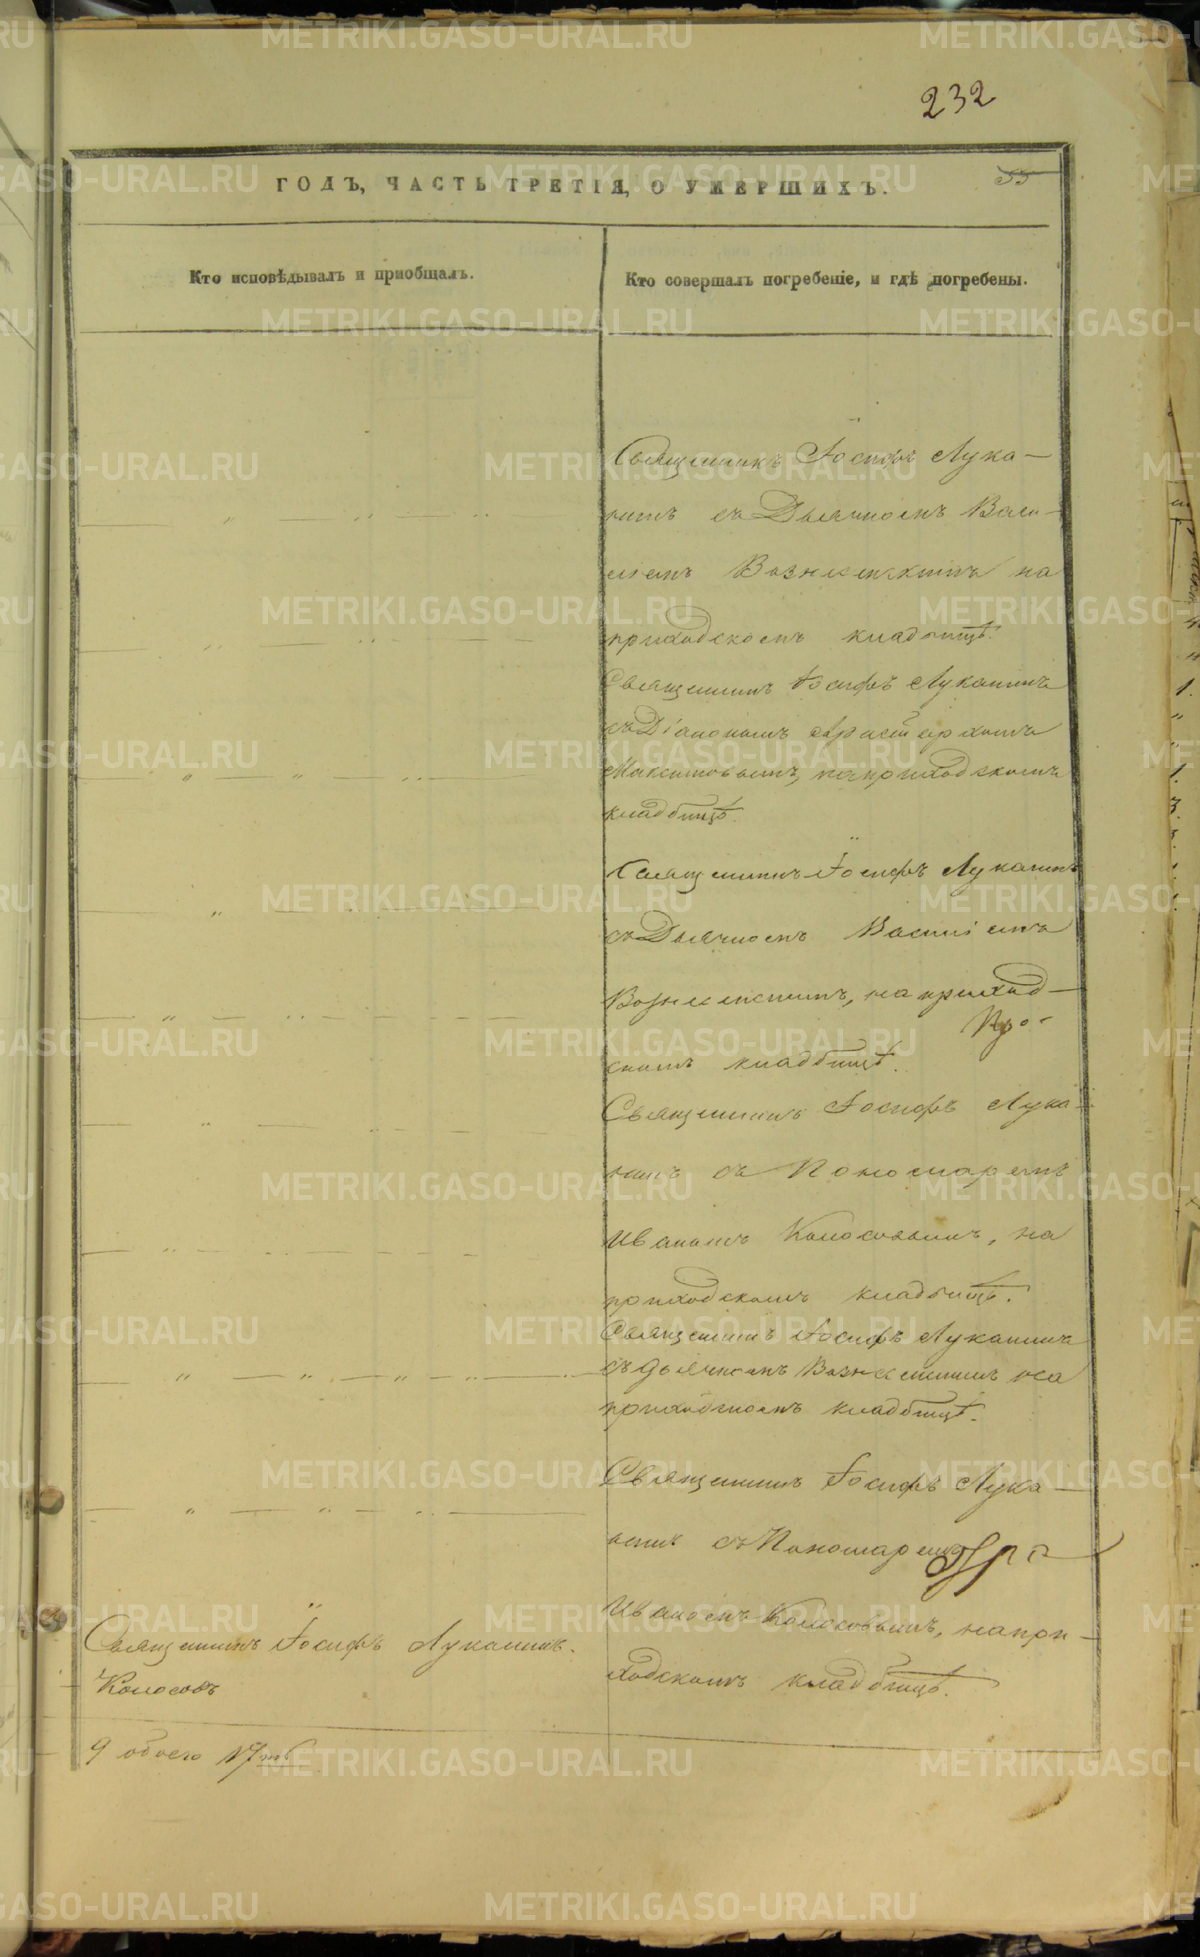 232
ГОДЪ, ЧАСТЬ ТРЕТІЯ, О УМЕРШИХЪ.
55
Кто исповѣдывалъ и пріобщалъ.
Кто совершалъ погребеніе, и гдѣ погребены.
Священникъ Іосифъ Лука-
нинъ съ Дьячкомъ Васи-
ліемъ Вознесенскимъ на
приходскомъ кладбищѣ.
Священникъ Іосифъ Луканинъ
съ Діакономъ Аристархомъ
Максимовымъ, на приходскомъ
кладбищѣ.
Священникъ Іосифъ Луканинъ
съ Дьячкомъ Василіемъ
Вознесенскимъ, на приход-
скомъ кладбищѣ.
Священникъ Іосифъ Лука-
нинъ съ Пономаремъ
Иваномъ Колосовымъ, на
приходскомъ кладбищѣ.
Священникъ Іосифъ Луканинъ
съ дьячкомъ Вознесенскимъ на
приходскомъ кладбищѣ.
Священникъ Іосифъ Лука-
нинъ съ Пономаремъ
Иваномъ Колосовымъ, на при-
ходскомъ кладбищѣ.
Священникъ Іосифъ Луканинъ.
Колосовъ
9 обоего 17
METRIKI.GASO-URAL.RU